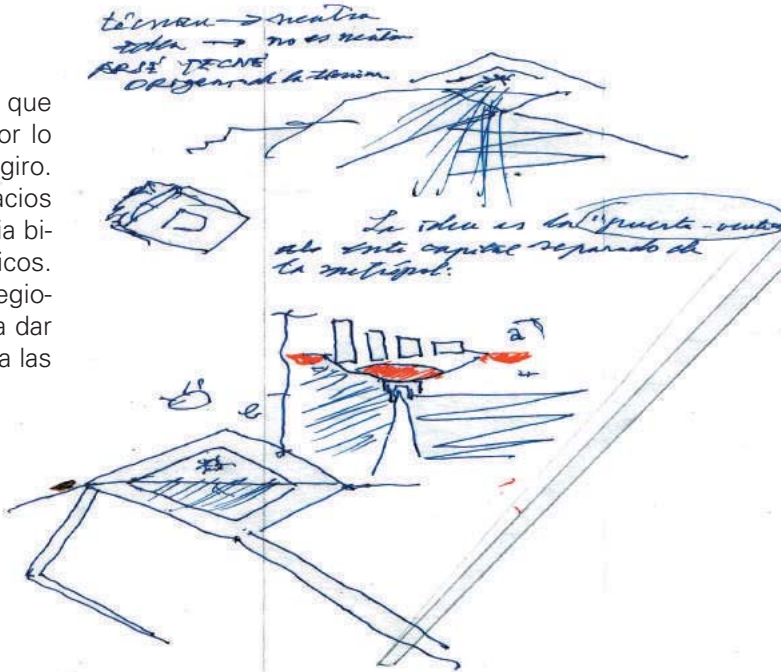 que
or lo
giro.
acios
ia bi-
icos.
egio-
a dar
a las
técnica → neutra
idea → no es neutra
ARSE TECNÉ
ORigen de la
La idea es la "puerta-
este capital separado de
la metrópol:
a
b